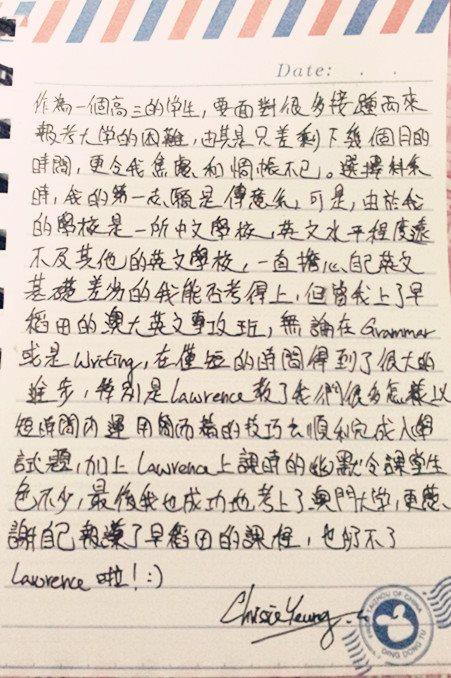 Date: . .
作為一個高三的学生，要面對很多接踵而來
報考大学的困難，尤其是只差剩下幾個月的
時間，更令我焦慮和惆悵不已。選擇科系
時，我的第一志願是傳意系，可是，由於我
的學校是一所中文學校，英文水平程度遠
不及其他的英文學校，一直擔心自己英文
基礎差劣的我能否考得上，但當我上了早
稻田的澳大英文專攻班，無論在Grammar
或是Writing，在僅短的時間得到了很大的
進步，特別是Lawrence教了我們很多怎樣以
短時間內運用簡而精的技巧去順利完成入學
試題，加上Lawrence上課時的幽默令課堂生
色不少，最後我也成功地考上了澳門大學，更感
謝自己報讀了早稻田的課程，也少不了
Lawrence啦！:)
Chrissie Yeung
TAIZHOU OF CHINA
DING DONG TU